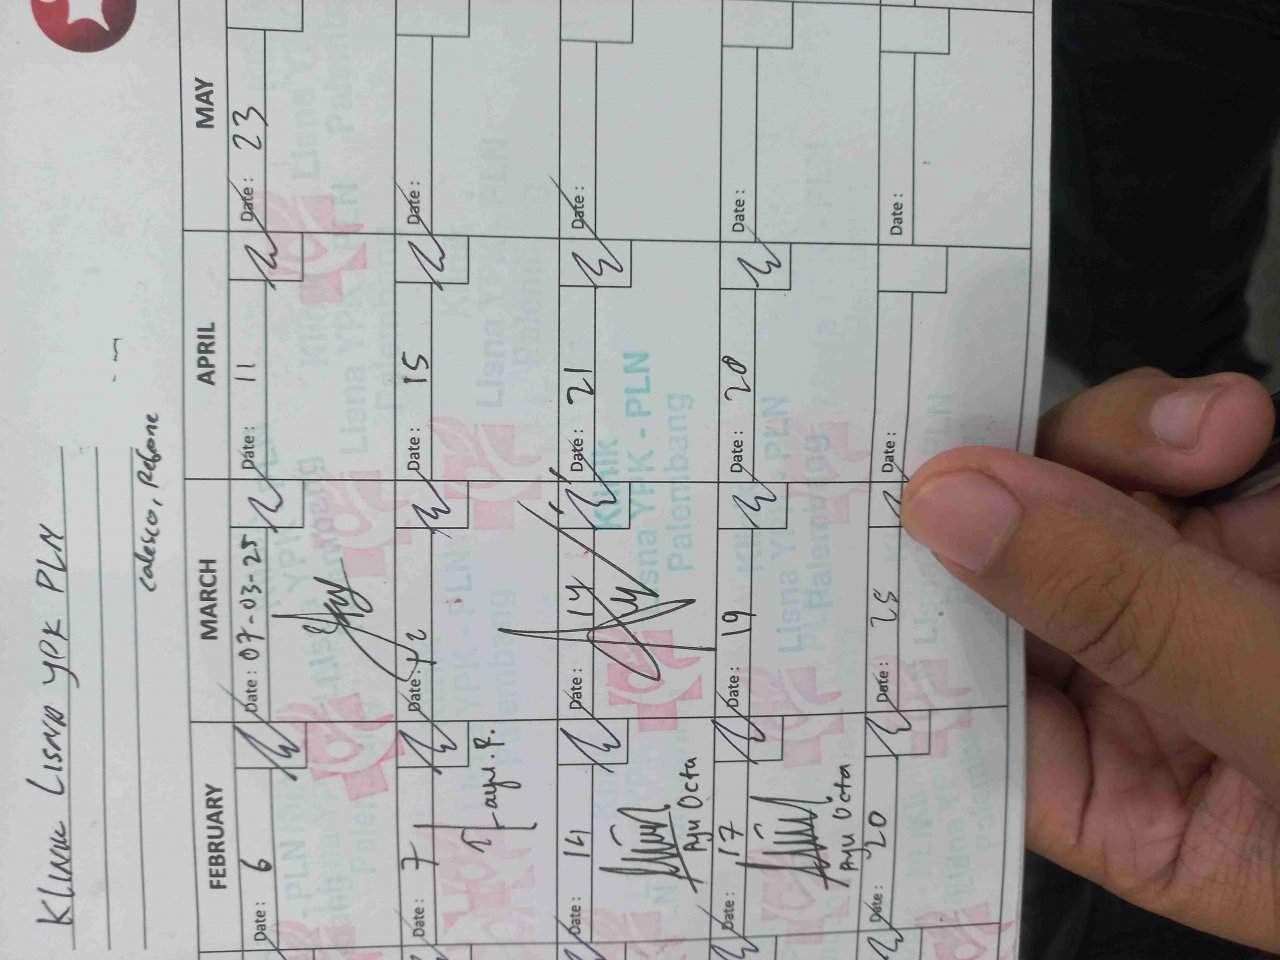 Klinik Lisna YPK PLN
Calesco, Rebone
FEBRUARY MARCH APRIL MAY
Date: 6 Date: 07-03-25 Date: 11 Date: 23
Date: 7 Date: 12 Date: 15 Date:
Date: 14 Date: 14 Date: 21 Date:
Ayu Octa
Klinik
Lisna YPK - PLN
Palembang
Date: 17 Date: 19 Date: 20 Date:
Ayu Octa
Date: 20 Date: 25 Date: Date: